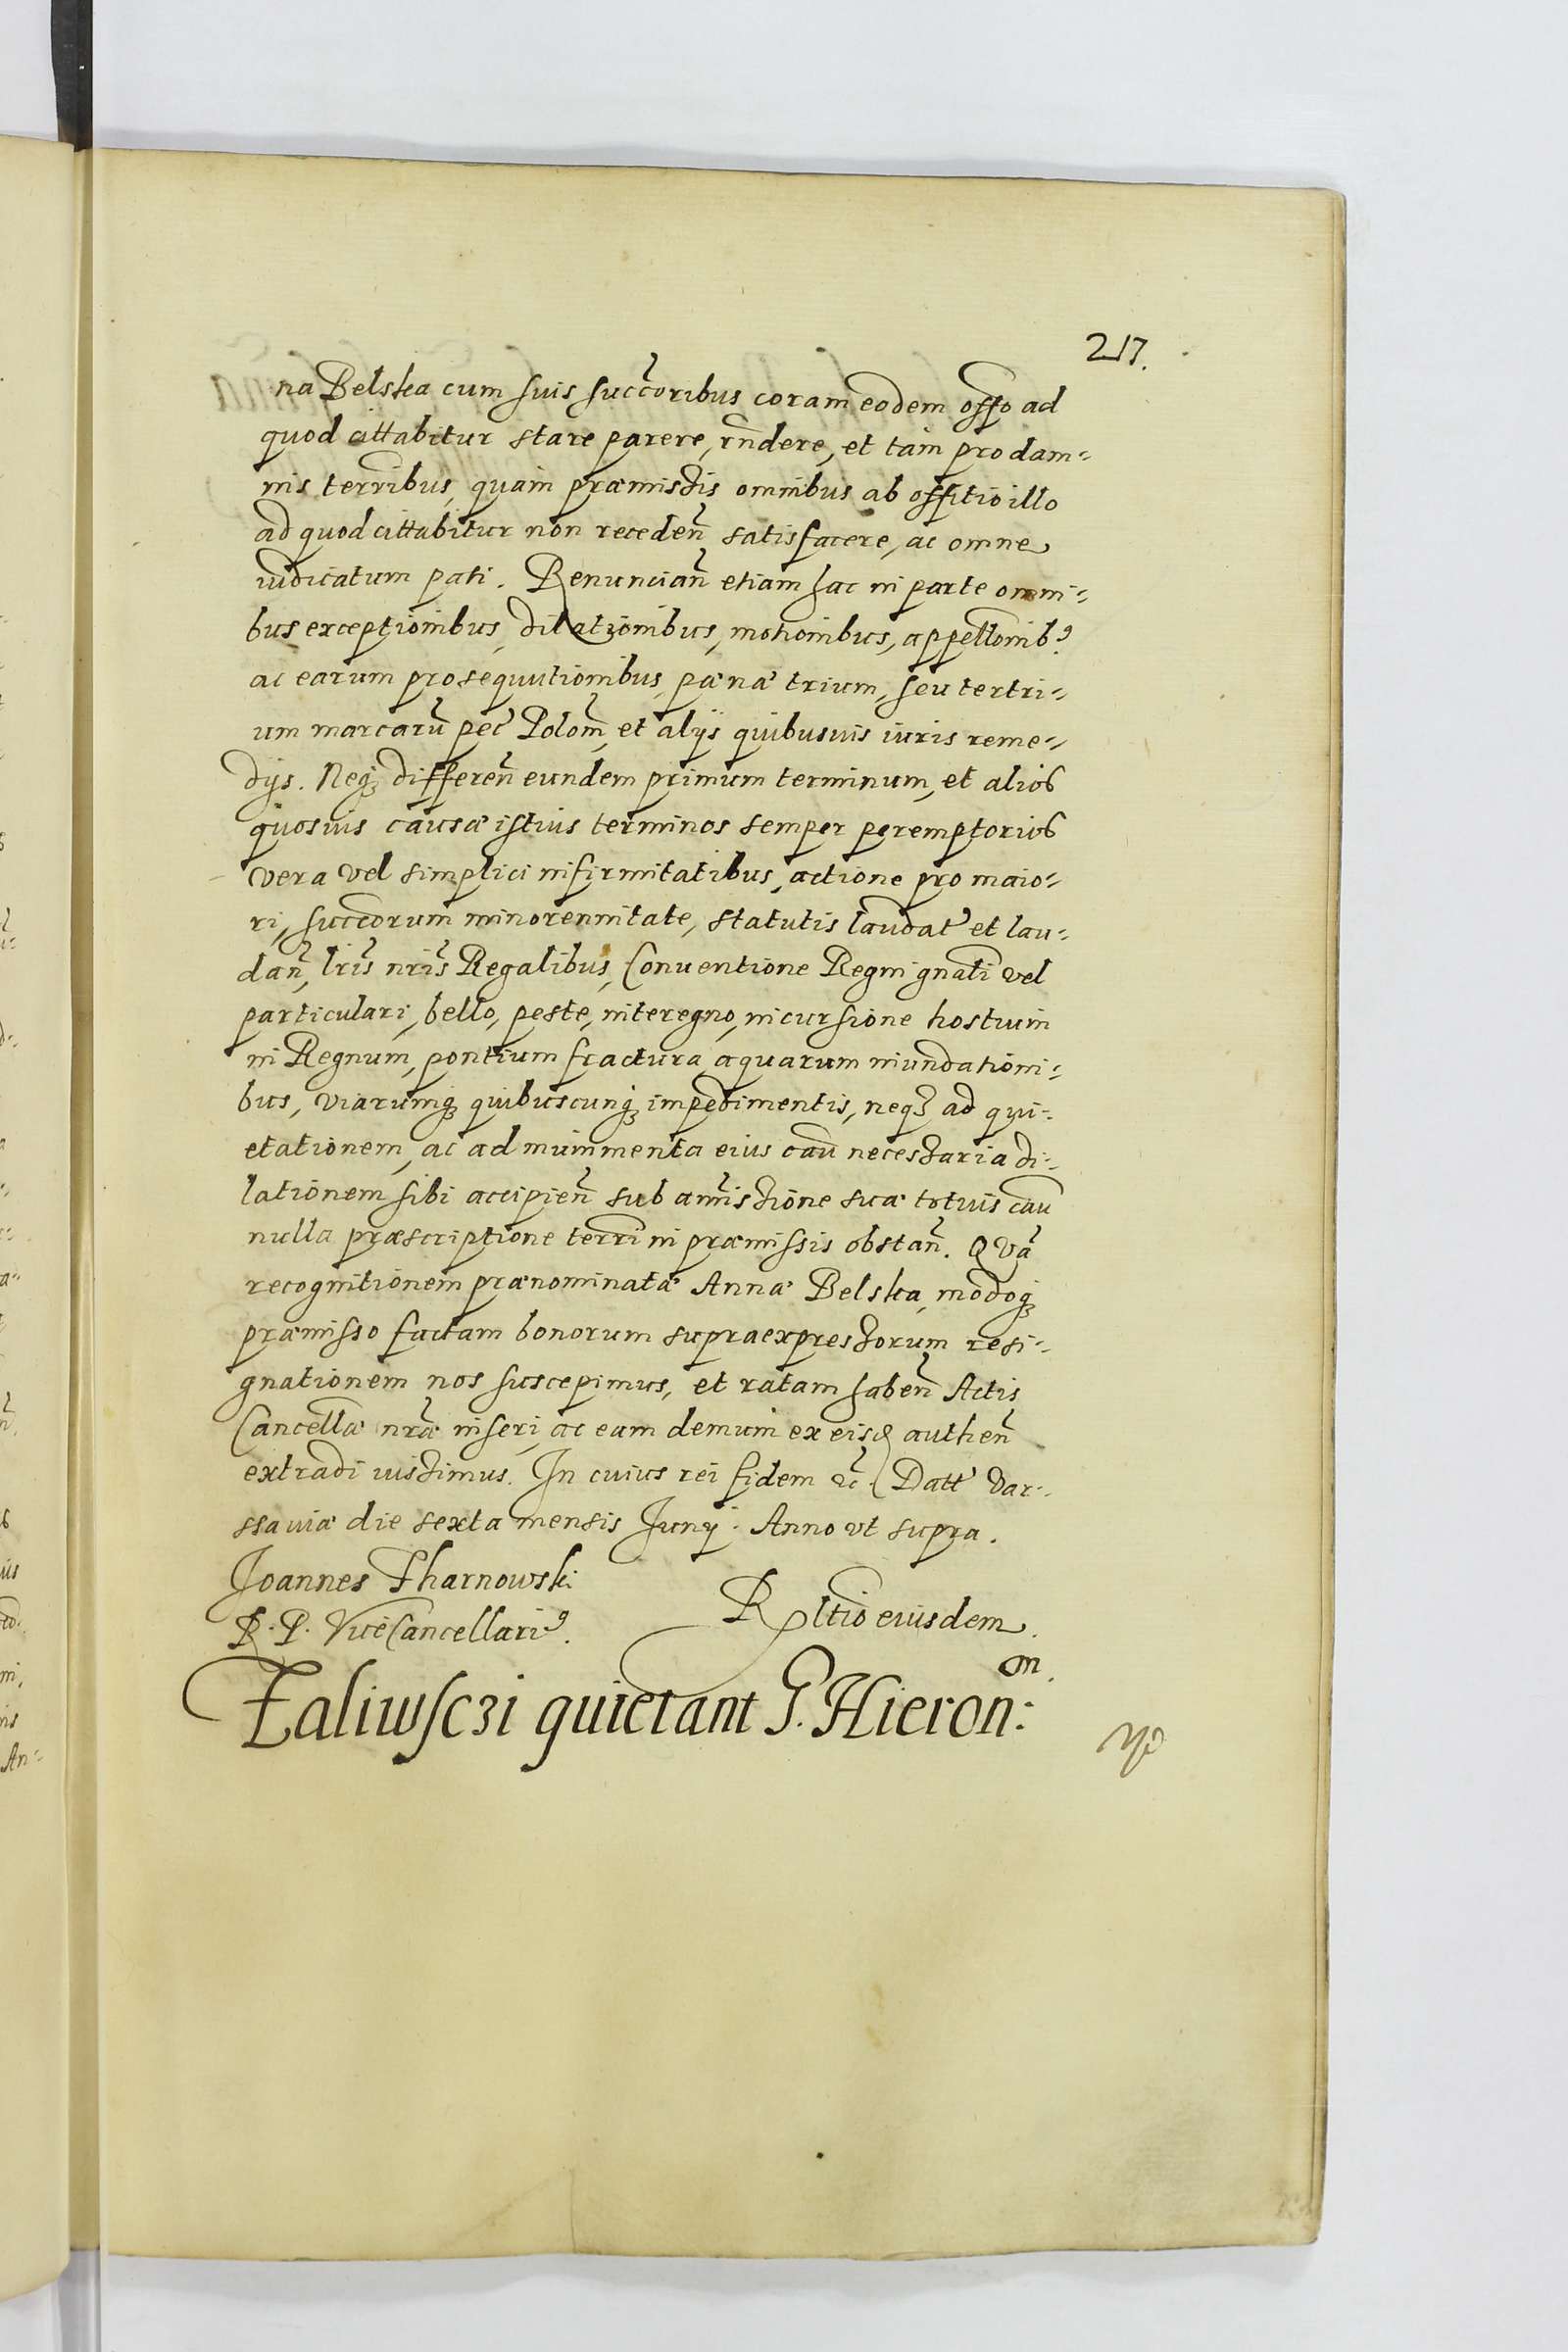 217.
na Belska cum suis succ̃oribus coram eodem offo ad
quod cittabitur stare parere, rñdere, et tam pro dam=
nis terribus, quam præmissis omnibus ab offitio illo
ad quod cittabitur non receden̄ satisfacere, ac omne
iudicatum pati. Renuncian̄ etiam hac in parte omni=
bus exceptionibus, dilationibus, motionibus, appellõnib9
ac earum prosequutionibus, pænæ trium, seu tertri=
um marcarũ pec̃ Polom̃, et alijs quibusuis iuris reme=
dijs. Neqȝ differen̄ eundem primum terminum, et alios
quosuis causæ istius terminos semper peremptorios
vera vel simplici infirmitatibus, actione pro maio=
ri, succorum minorennitate, statutis laudat̃ et lau=
dan̄, lr̃is nr̃is Regalibus, Conuentione Regni gnãli vel
particulari, bello, peste, interegno, incursione hostium
in Regnum, pontium fractura, aquarum inundationi=
bus, viarumqȝ quibuscunqȝ impedimentis, neqȝ ad qui=
etationem, ac ad munimenta eius caũ necessaria di=
lationem sibi accipien̄ sub amissione suæ totius caũ
nulla præscriptione terr̃i in præmissis obstan̄. Quã
recognitionem prænominatæ Annæ Belska, modoqȝ
præmisso factam bonorum supraexpressorum resi=
gnationem nos suscepimus, et ratam haben̄ Actis
Cancellæ nr̃æ inseri, ac eam demum ex eisd authen̄
extradi iussimus. In cuius rei fidem etc̃. Datt̃ Var=
ssauiæ die sexta mensis Junij. Anno vt supra.
Joannes Tharnowski
R. P. ViceCancellari9.
Rltio eiusdem.
Zaliwsczi quietant G. Hieron: m.